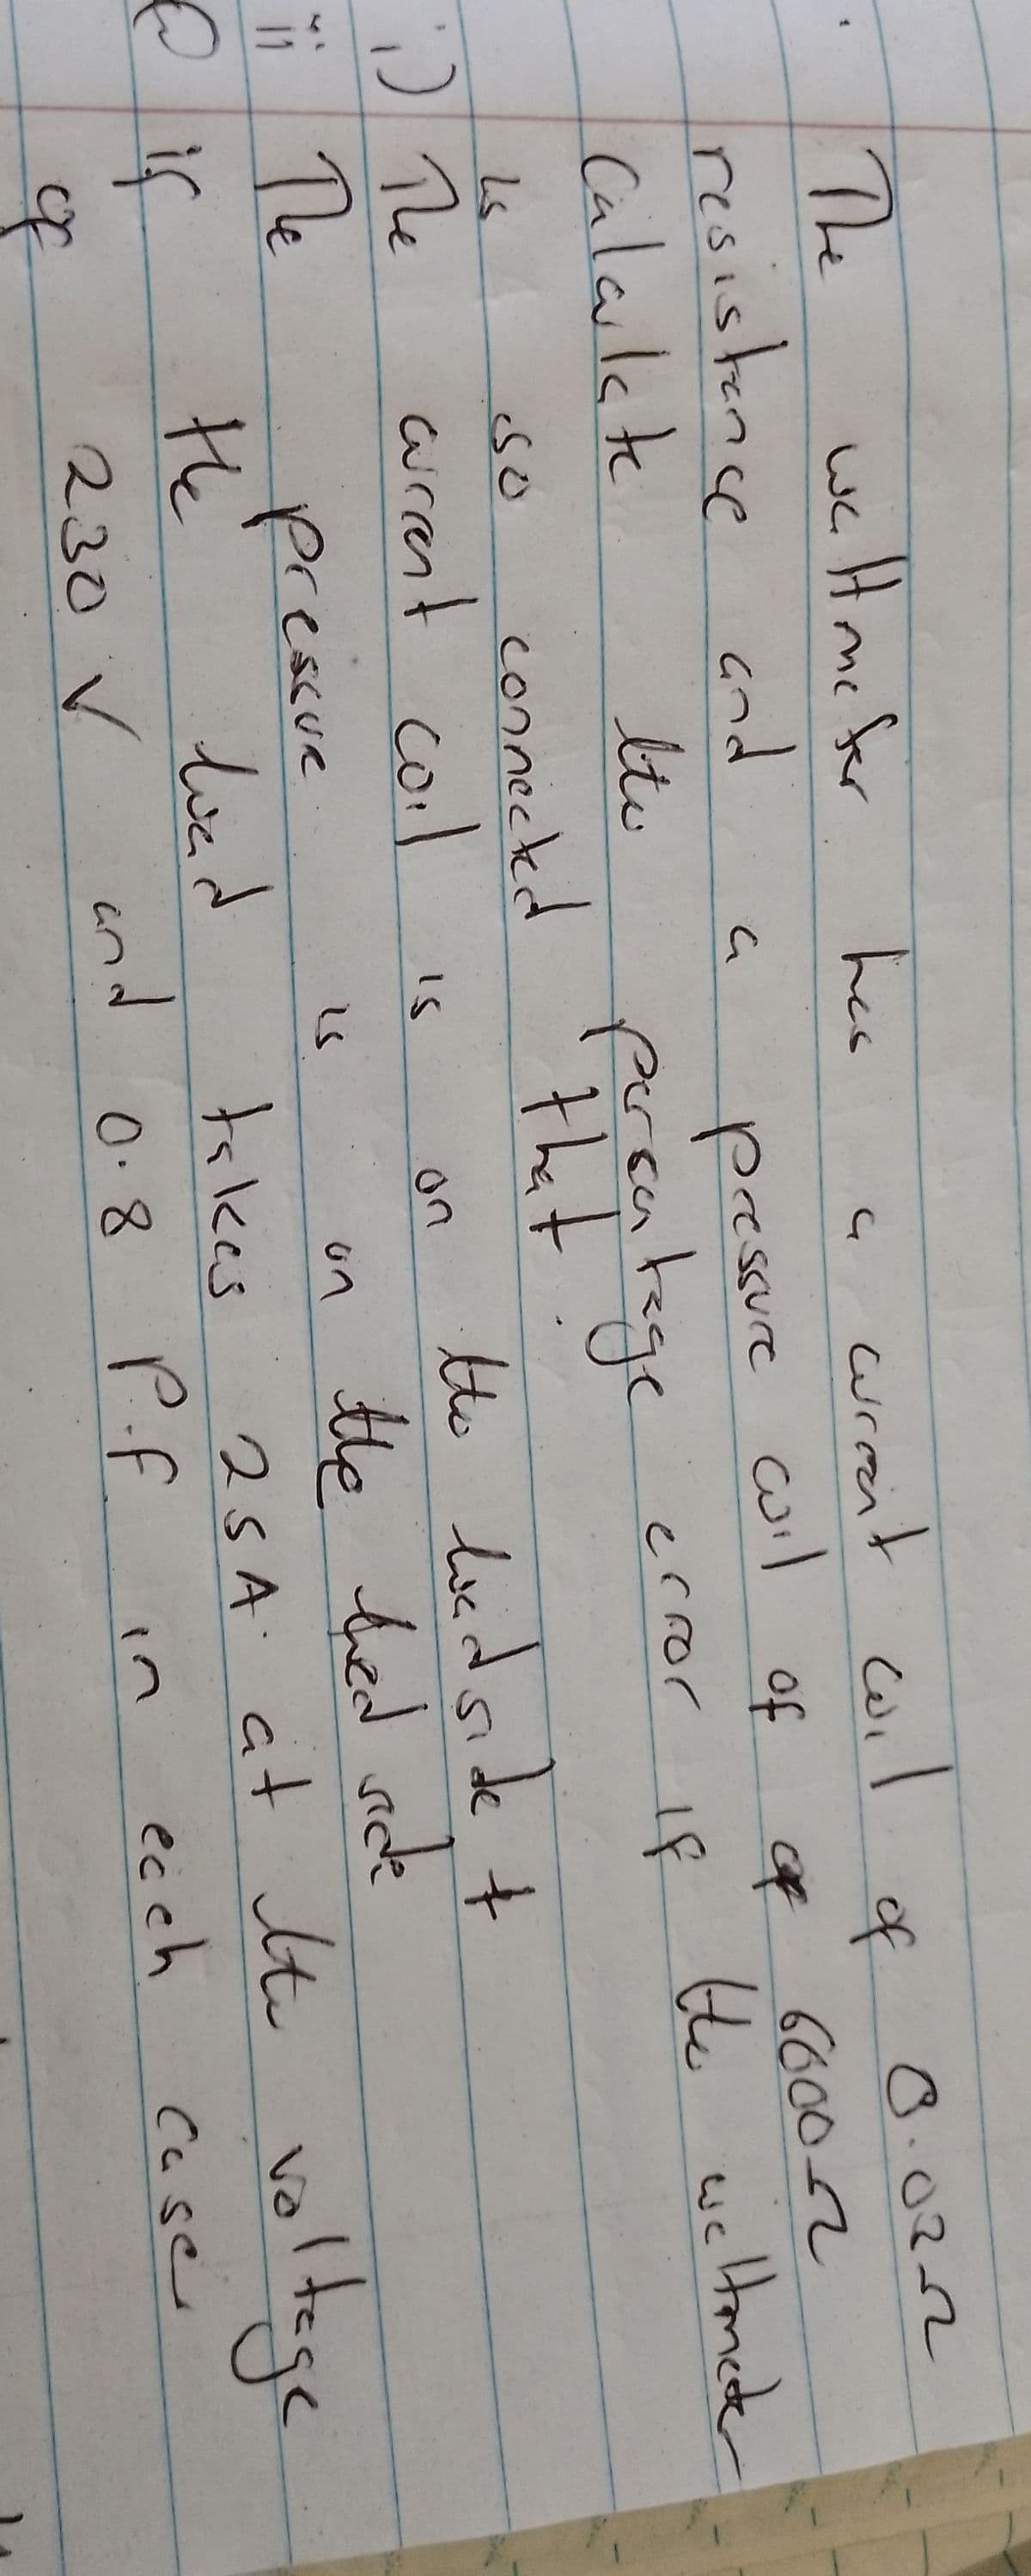 The wattmeter has a current coil of 0.02Ω
resistance and a pressure coil of of 6000Ω
Calculate the percentage error if the wattmeter
is so connected that.
i) The current coil is on the load side +
ii The pressure is on the load side
if the load takes 25A. at the voltage
of 230 V and 0.8 P.f in each case